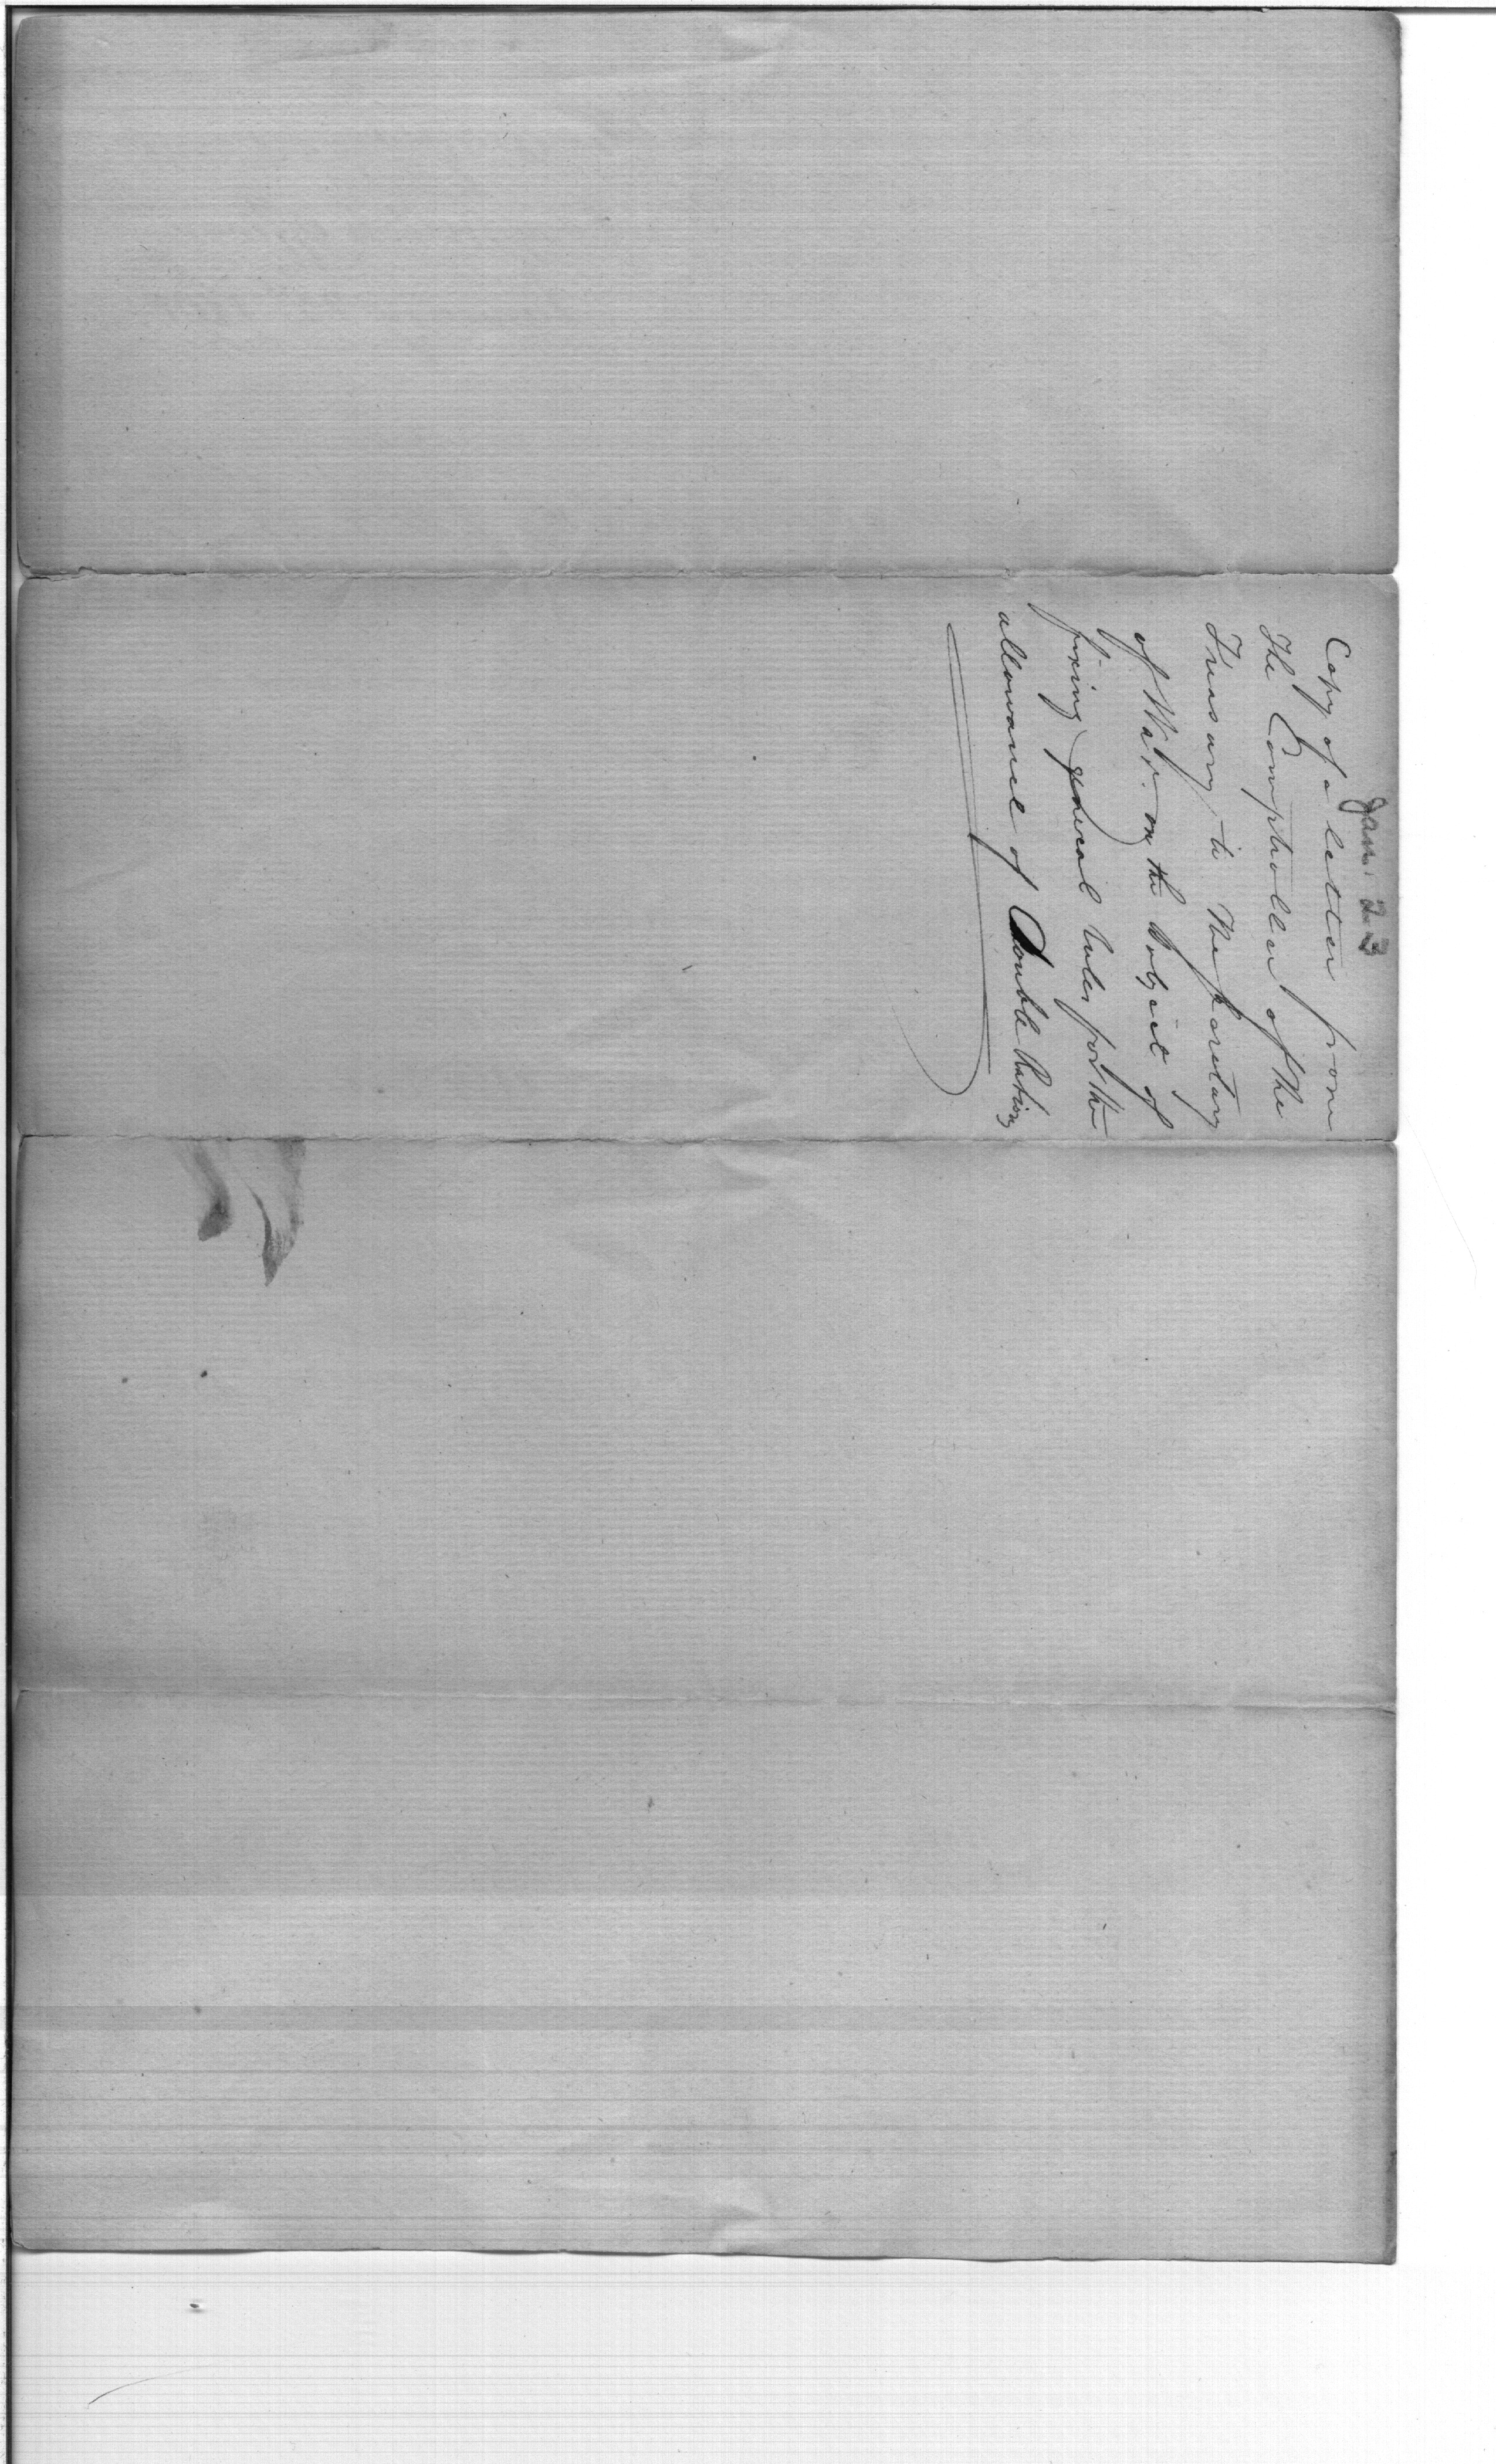 Jan. 23
Copy of a letter from
The Comptroller of the
Treasury to The Secretary
of War. on the Subject of
fixing general rules for the
allowance of Double Rations